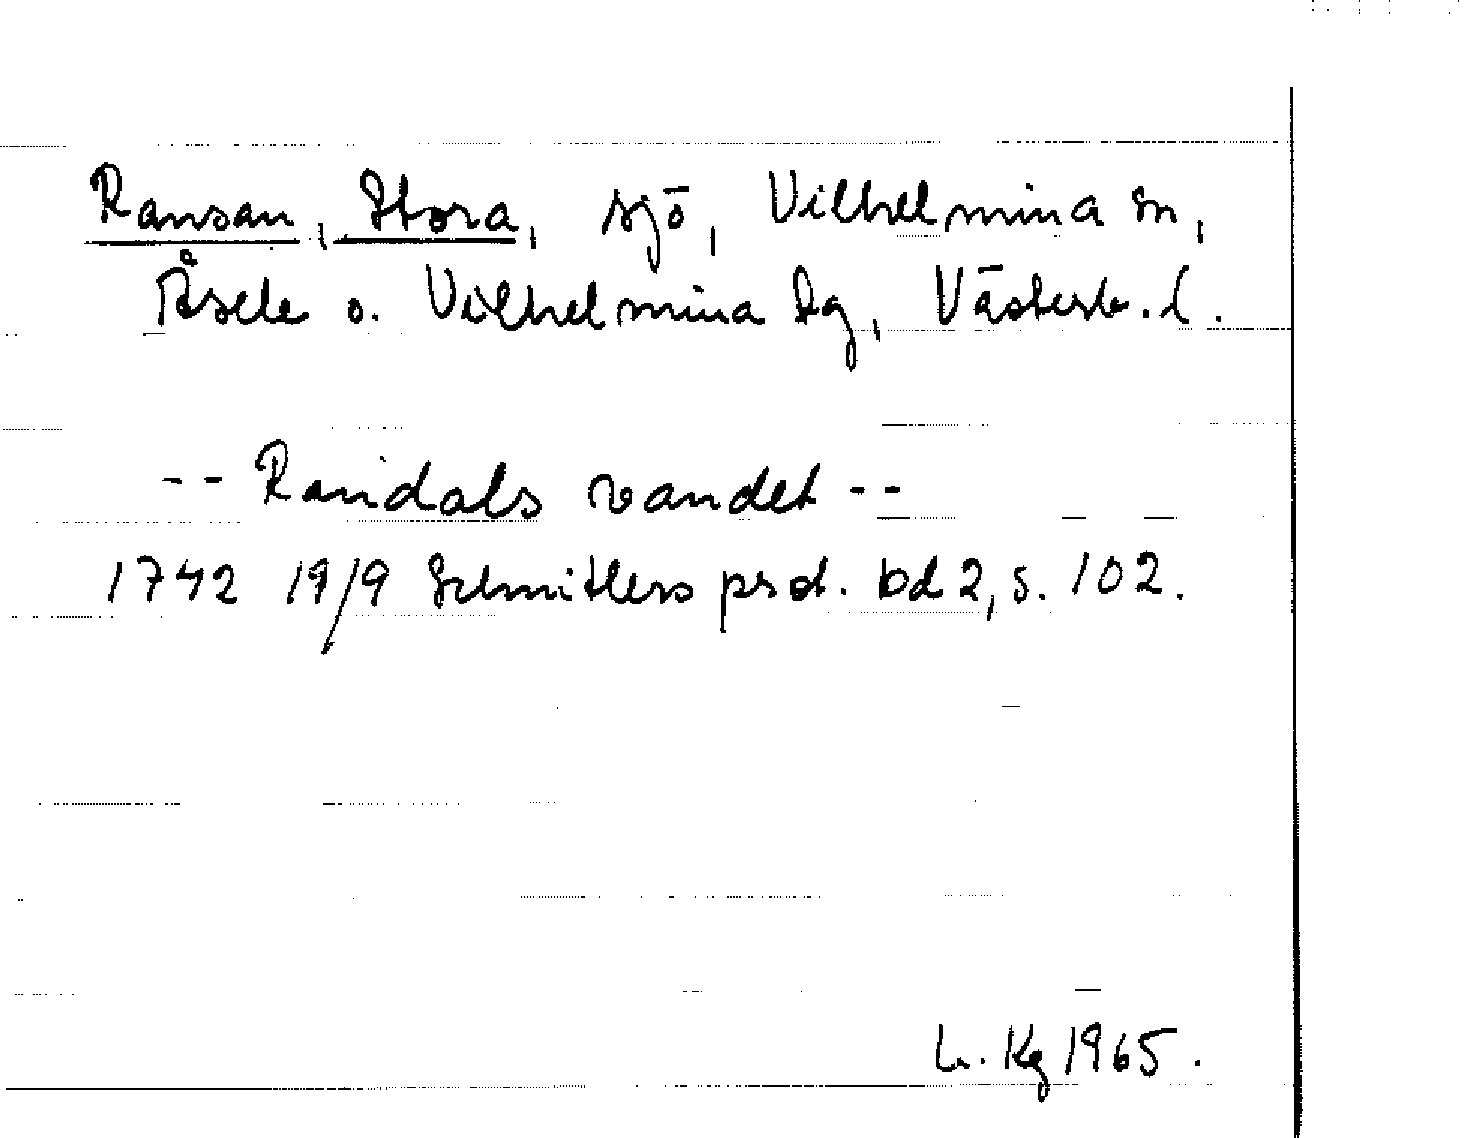 Ransan, Stora, sjö, Vilhelmina sn,
Åsele o. Vilhelmina tg, Västerb. l.
-- Randals vandet --
1742 19/9 Schnitlers prot. bd 2, s. 102.
L. Kg 1965.